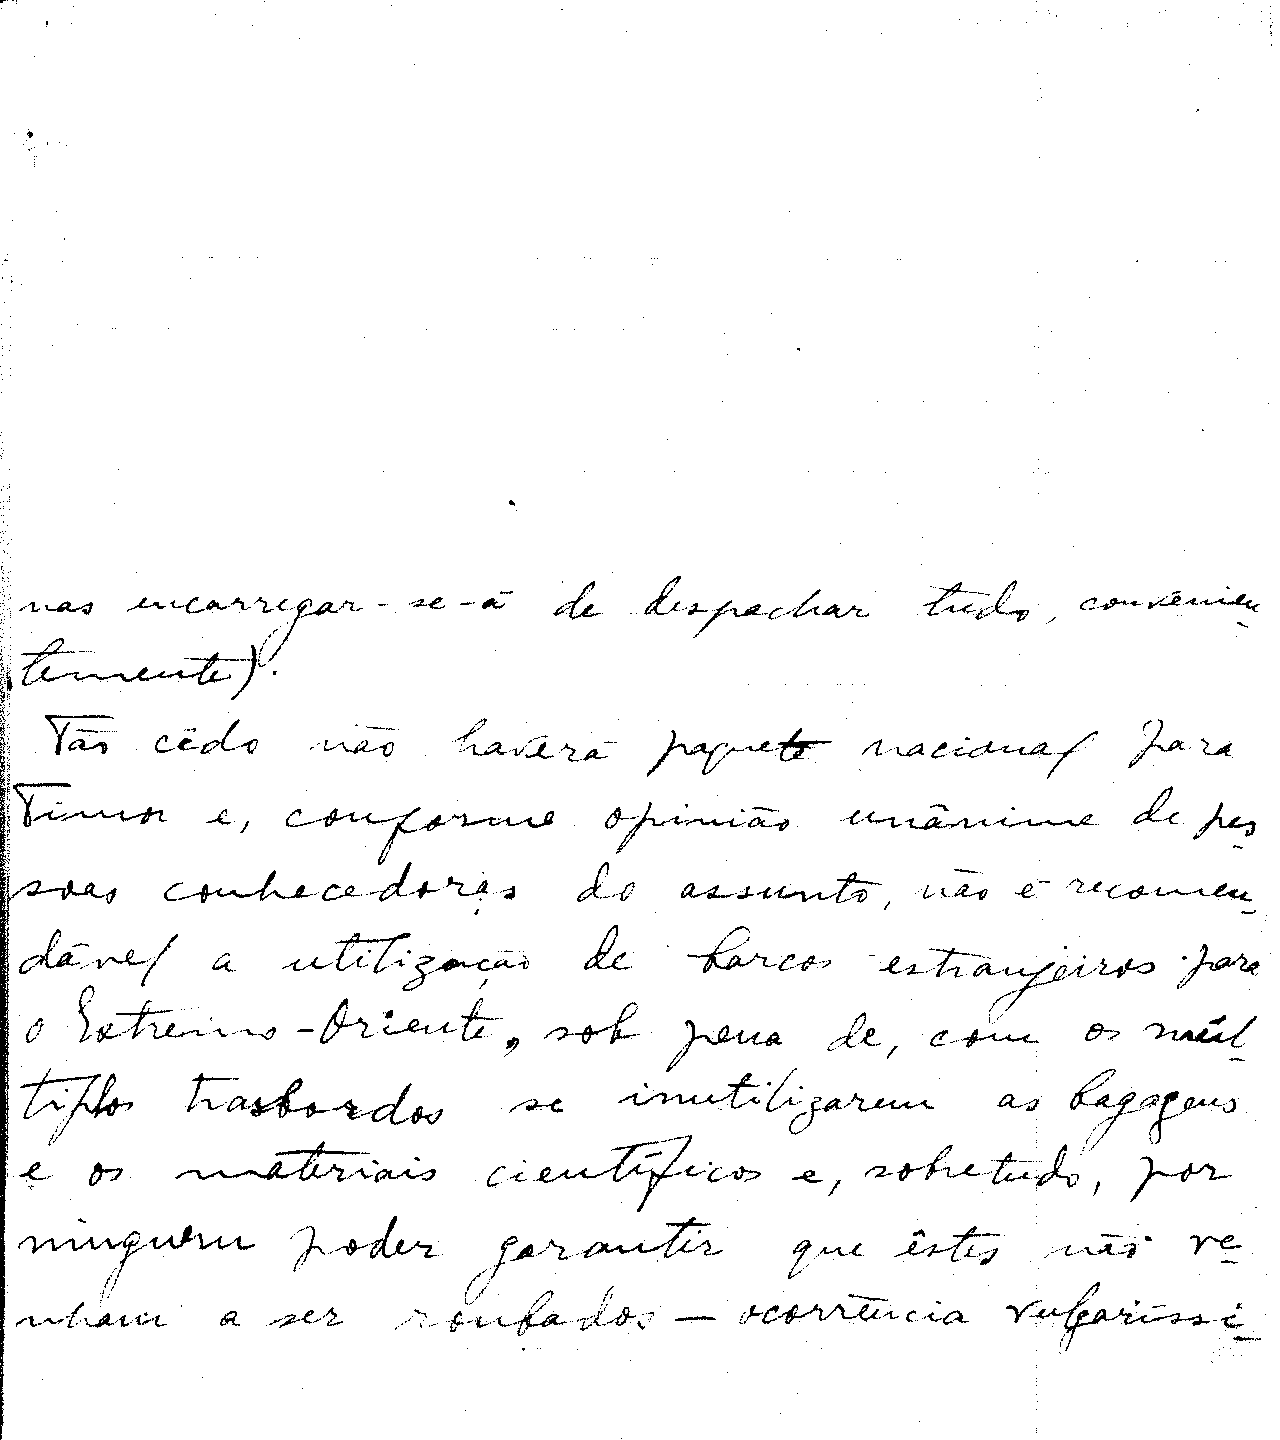 nas encarregar-se-á de despachar tudo, convenien-
temente).
Tão cêdo não haverá paquete nacional para
Timor e, conforme opinião unânime de pes-
soas conhecedoras do assunto, não é recomen-
dável a utilização de barcos estrangeiros para
o Extremo-Oriente, sob pena de, com os múl-
tiplos trasbordos se inutilizarem as bagagens
e os materiais científicos e, sobretudo, por
ninguem poder garantir que êstes não ve-
nham a ser roubados — ocorrência vulgaríssi-